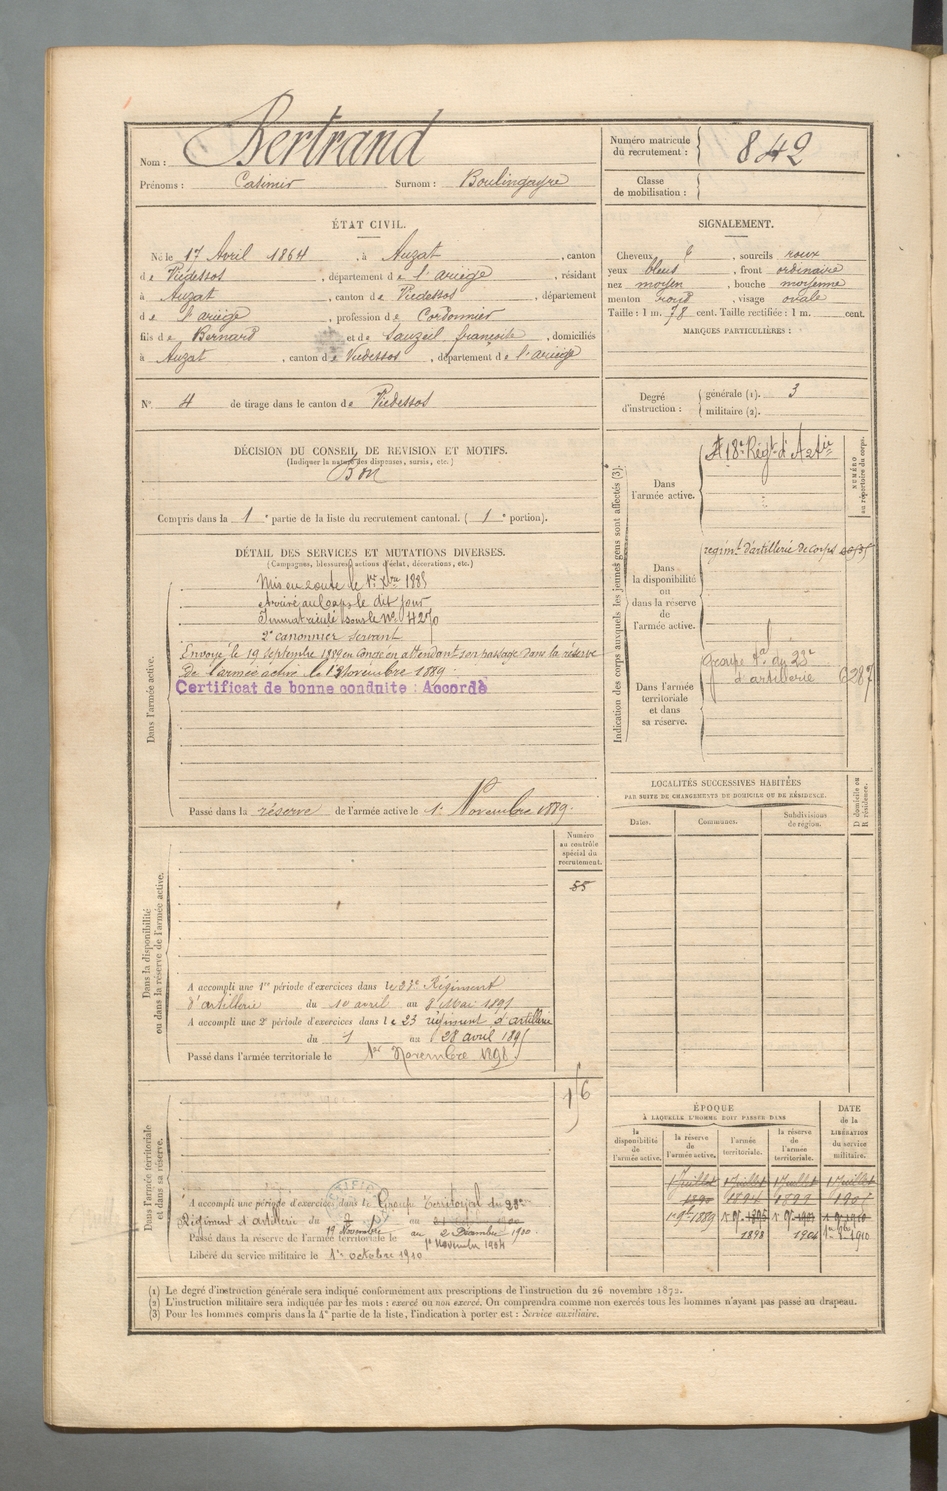 Nom : Bertrand
Prénoms : Casimir Surnom : Boulingayre
Numéro matricule du recrutement : 842
Classe de mobilisation :
ÉTAT CIVIL.
Né le 17 Avril 1864, à Auzat, canton
de Vicdessos, département de l'ariège, résidant
à Auzat, canton de Vicdessos, département
de l'ariège, profession de Cordonnier
fils de Bernard et de Sauzeil françoise, domiciliés
à Auzat, canton de Vicdessos, département de l'ariège
N° 4 de tirage dans le canton de Vicdessos
SIGNALEMENT.
Cheveux, sourcils roux
yeux bleus, front ordinaire
nez moyen, bouche moyenne
menton rond, visage ovale
Taille : 1 m. 78 cent. Taille rectifiée : 1 m. cent.
MARQUES PARTICULIÈRES :
Degré d'instruction : générale (1). 3
militaire (2).
DÉCISION DU CONSEIL DE REVISION ET MOTIFS.
(Indiquer la nature des dispenses, sursis, etc.)
Bon
Compris dans la 1e partie de la liste du recrutement cantonal. (1e portion).
DÉTAIL DES SERVICES ET MUTATIONS DIVERSES.
(Campagnes, blessures, actions d'éclat, décorations, etc.)
Dans l'armée active.
Mis en route le 1er Xbre 1885
Arrivé au corps le dit jour
Immatriculé sous le N° 4270
2e canonnier servant
Envoyé le 19 Septembre 1889 en Congé en attendant son passage dans la réserve
De l'armée active le 1 Novembre 1889
Certificat de bonne conduite : Accordé
Passé dans la réserve de l'armée active le 1er Novembre 1889.
Indication des corps auxquels les jeunes gens sont affectés (3).
NUMÉRO au répertoire du corps.
Dans l'armée active.
18e Régt d'Artie
Dans la disponibilité ou dans la réserve de l'armée active.
regimt d'artillerie de corps
Dans l'armée territoriale et dans sa réserve.
groupe tal du 23e
d'artillerie 6287
LOCALITÉS SUCCESSIVES HABITÉES
PAR SUITE DE CHANGEMENTS DE DOMICILE OU DE RÉSIDENCE.
Dates. Communes. Subdivisions de région. D domicile ou R résidence.
Dans la disponibilité ou dans la réserve de l'armée active.
Numéro au contrôle spécial du recrutement.
55
A accompli une 1re période d'exercices dans le 23e Régiment
d'artillerie du 10 avril au 8 Mai 1891
A accompli une 2e période d'exercices dans le 23 régiment d'artillerie
du 1 au 28 avril 1895
Passé dans l'armée territoriale le 1er Novembre 1898
Dans l'armée territoriale et dans sa réserve.
A accompli une période d'exercices dans le Groupe Territorial du 23e
Régiment d'artillerie du
19 Novembre au 2 Décembre 1900.
Passé dans la réserve de l'armée territoriale le 1er Novembre 1904
Libéré du service militaire le 1er octobre 1910
ÉPOQUE
À LAQUELLE L'HOMME DOIT PASSER DANS
DATE de la LIBÉRATION du service militaire.
la disponibilité de l'armée active. la réserve de l'armée active. l'armée territoriale. la réserve de l'armée territoriale.
1 Juillet 1 Juillet 1 Juillet 1 Juillet
1890 1894 1899 1905
1 9bre 1889 1 9bre 1895 1 9bre 1901 1 9bre 1910
1898 1904 1910
(1) Le degré d'instruction générale sera indiqué conformément aux prescriptions de l'instruction du 26 novembre 1872.
(2) L'instruction militaire sera indiquée par les mots : exercé ou non exercé. On comprendra comme non exercés tous les hommes n'ayant pas passé au drapeau.
(3) Pour les hommes compris dans la 4e partie de la liste, l'indication à porter est : Service auxiliaire.